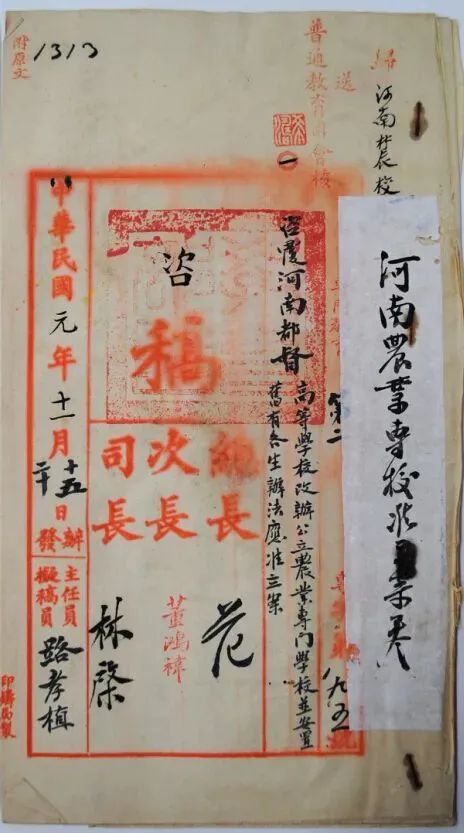 河南農業專校准立案卷
歸
河南農校
送
普通教育司會核
咨覆河南都督
高等學校改辦公立農業專門學校並安置
舊有各生辦法應准立案
第二
九五
號
咨
稿
總長
范
次長
董鴻禕
司長
林棨
中華民國元年十一月
十五日辦
二十
發
主任員
擬稿員
路孝植
附原文
1313
印鑄局製